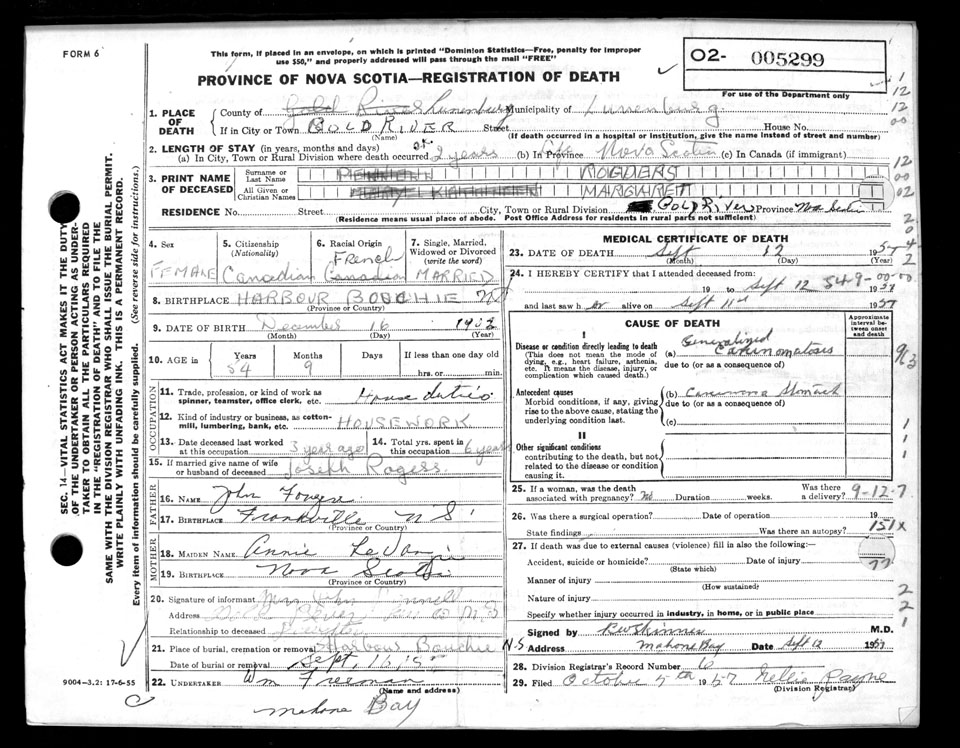 FORM 6
This form, if placed in an envelope, on which is printed "Dominion Statistics—Free, penalty for improper
use $50," and properly addressed will pass through the mail "FREE"
O2- 005299
For use of the Department only
PROVINCE OF NOVA SCOTIA—REGISTRATION OF DEATH
1. PLACE OF DEATH
County of Gold River Lunenburg Municipality of Lunenburg
If in City or Town GOLD RIVER Street House No.
(Name) (If death occurred in a hospital or institution, give the name instead of street and number)
2. LENGTH OF STAY (in years, months and days)
(a) In City, Town or Rural Division where death occurred 2 years (b) In Province Life Nova Scotia (c) In Canada (if immigrant)
3. PRINT NAME OF DECEASED
Surname or Last Name ROGDERS
All Given or Christian Names MARGARET
RESIDENCE No. Street City, Town or Rural Division Gold River Province Nova Scotia
(Residence means usual place of abode. Post Office Address for residents in rural parts not sufficient)
4. Sex
FEMALE
5. Citizenship (Nationality)
Canadian
6. Racial Origin
French
Canadian
7. Single, Married, Widowed or Divorced (write the word)
MARRIED
8. BIRTHPLACE HARBOUR BOUCHIE NS
(Province or Country)
9. DATE OF BIRTH December 16
(Month) (Day) (Year)
10. AGE IN Years Months Days If less than one day old
54 9 hrs. or min.
OCCUPATION
11. Trade, profession, or kind of work as spinner, teamster, office clerk, etc. House duties
12. Kind of industry or business, as cotton-mill, lumbering, bank, etc. HOUSEWORK
13. Date deceased last worked at this occupation 3 years ago
14. Total yrs. spent in this occupation 6 years
15. If married give name of wife or husband of deceased Joseph Rogers
FATHER
16. NAME John Fougere
17. BIRTHPLACE Frankville N S
(Province or Country)
MOTHER
18. MAIDEN NAME Annie
19. BIRTHPLACE Nova Scotia
(Province or Country)
20. Signature of informant Mrs John
Address Gold River
Relationship to deceased
21. Place of burial, cremation or removal Harbour Bouchie N-S
Date of burial or removal Sept. 16
22. UNDERTAKER Wm Freeman
(Name and address)
Mahone Bay
9004—3.2: 17-6-55
MEDICAL CERTIFICATE OF DEATH
23. DATE OF DEATH Sept 12 1957
(Month) (Day)
24. I HEREBY CERTIFY that I attended deceased from:
19 to Sept 12 1957
and last saw her alive on Sept 11th 1957
CAUSE OF DEATH
Approximate interval between onset and death
I
Disease or condition directly leading to death
(This does not mean the mode of dying, e.g., heart failure, asthenia, etc. It means the disease, injury, or complication which caused death.)
(a) Generalized Carcinomatosis
due to (or as a consequence of)
Antecedent causes
Morbid conditions, if any, giving rise to the above cause, stating the underlying condition last.
(b) Carcinoma Stomach
due to (or as a consequence of)
(c)
II
Other significant conditions
contributing to the death, but not related to the disease or condition causing it.
25. If a woman, was the death associated with pregnancy? No Duration weeks. Was there a delivery?
9-12-7
26. Was there a surgical operation? Date of operation 19
151X
State findings Was there an autopsy?
27. If death was due to external causes (violence) fill in also the following:—
Accident, suicide or homicide? Date of injury
(State which)
77
Manner of injury
(How sustained)
Nature of injury
Specify whether injury occurred in industry, in home, or in public place
Signed by RW Skinner M.D.
Address Mahone Bay Date Sept 12 1957
28. Division Registrar's Record Number 6
29. Filed October 5th 1957 Nellie Payne
(Division Registrar)
SEC. 14—VITAL STATISTICS ACT MAKES IT THE DUTY
OF THE UNDERTAKER OR PERSON ACTING AS UNDER-
TAKER TO OBTAIN ALL THE PARTICULARS REQUIRED
IN THE "REGISTRATION OF DEATH" AND TO FILE THE
SAME WITH THE DIVISION REGISTRAR WHO SHALL ISSUE THE BURIAL PERMIT.
WRITE PLAINLY WITH UNFADING INK. THIS IS A PERMANENT RECORD.
Every item of information should be carefully supplied. (See reverse side for instructions.)